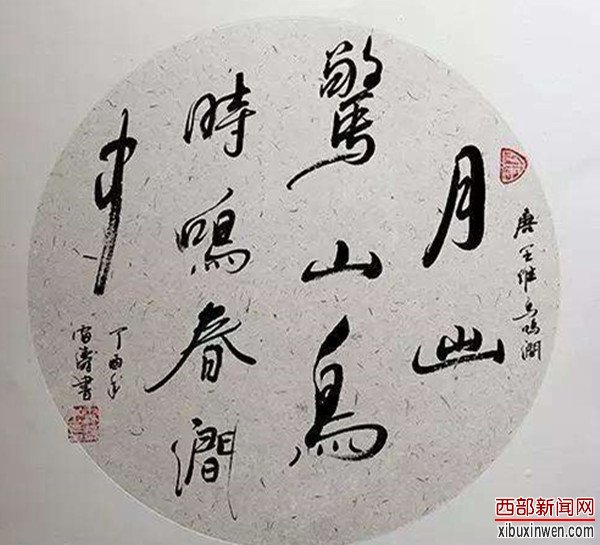 唐王维鸟鸣澗
月出
驚山鳥
時鳴春澗
中
丁酉年
書
西部新闻网
xibuxinwen.com